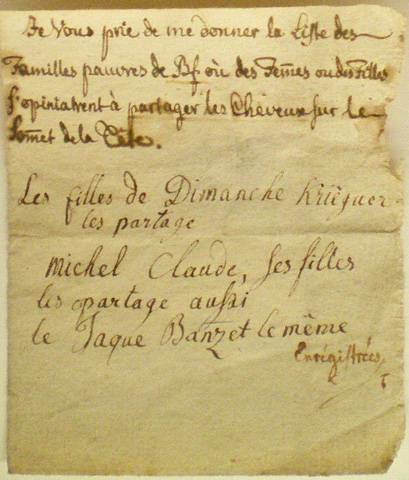 Je Vous prie de me donner la Liste des
Familles pauvres de Bf où des Femes ou des Filles
s'opiniatrent à partager les Cheveux sur le
Somet de la Tête.
Les filles de Dimanche Krieguer
les partage
Michel Claude, ses filles
les partage aussi
le Jaque Banzet le même
Enrégistrées